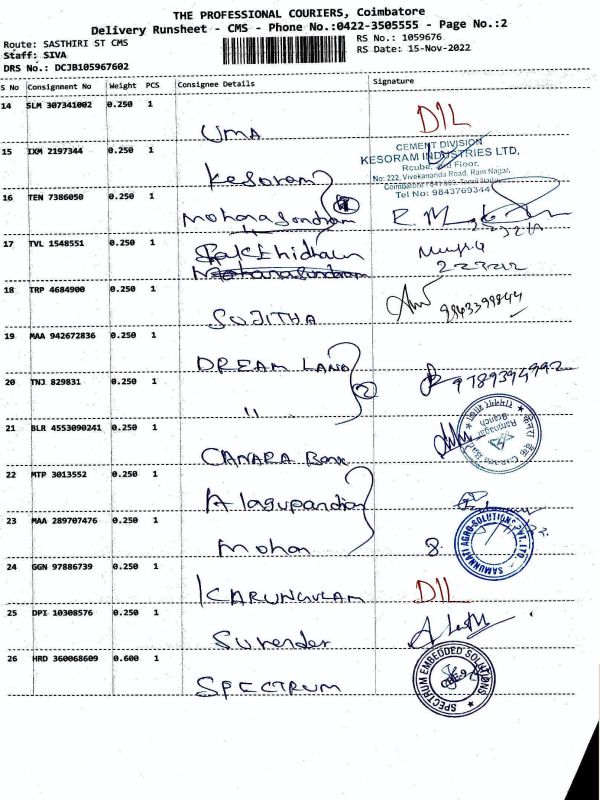 THE PROFESSIONAL COURIERS, Coimbatore
Delivery Runsheet - CMS - Phone No.:0422-3505555 - Page No.:2
Route: SASTHIRI ST CMS
RS No.: 1059676
Staff: SIVA
RS Date: 15-Nov-2022
DRS No.: DCJB105967602
S No Consignment No Weight PCS Consignee Details Signature
14 SLM 307341002 0.250 1
UMA DIL
15 IXM 2197344 0.250 1
Kesoram
CEMENT DIVISION
KESORAM INDUSTRIES LTD,
Floor,
No: 222, Vivekananda Road, Ram Nagar,
Tel No: 9843769344
16 TEN 7386050 0.250 1
Mohanasundram
17 TVL 1548551 0.250 1
Sakthidharan
18 TRP 4684900 0.250 1
SUJITHA
19 MAA 942672836 0.250 1
DREAM LAND
20 TNJ 829831 0.250 1
" 2
21 BLR 4553090241 0.250 1
CANARA Bank
22 MTP 3013552 0.250 1
Alagupandian
23 MAA 289707476 0.250 1
Mohan
SAMUNNATI AGRO-SOLUTIONS PVT. LTD.
24 GGN 97886739 0.250 1
KARUNGULAM DIL
25 DPI 10308576 0.250 1
Surender
26 HRD 360068609 0.600 1
SPECTRUM
SPECTRUM EMBEDDED SOLUTIONS